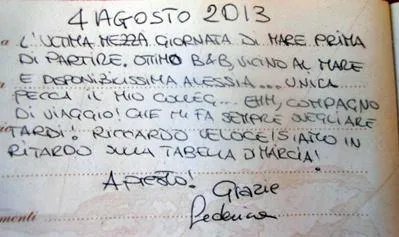 4 AGOSTO 2013
L'ULTIMA MEZZA GIORNATA DI MARE PRIMA
DI PARTIRE, OTTIMO B&B, VICINO AL MARE
E DISPONIBILISSIMA ALESSIA... UNICA
PECCA IL MIO COLLEG... EHM, COMPAGNO
DI VIAGGIO! CHE MI FA SEMPRE SVEGLIARE
TARDI! RICCARDO VELOCE! SIAMO IN
RITARDO SULLA TABELLA DI MARCIA!
A PRESTO! Grazie
Federica
menti